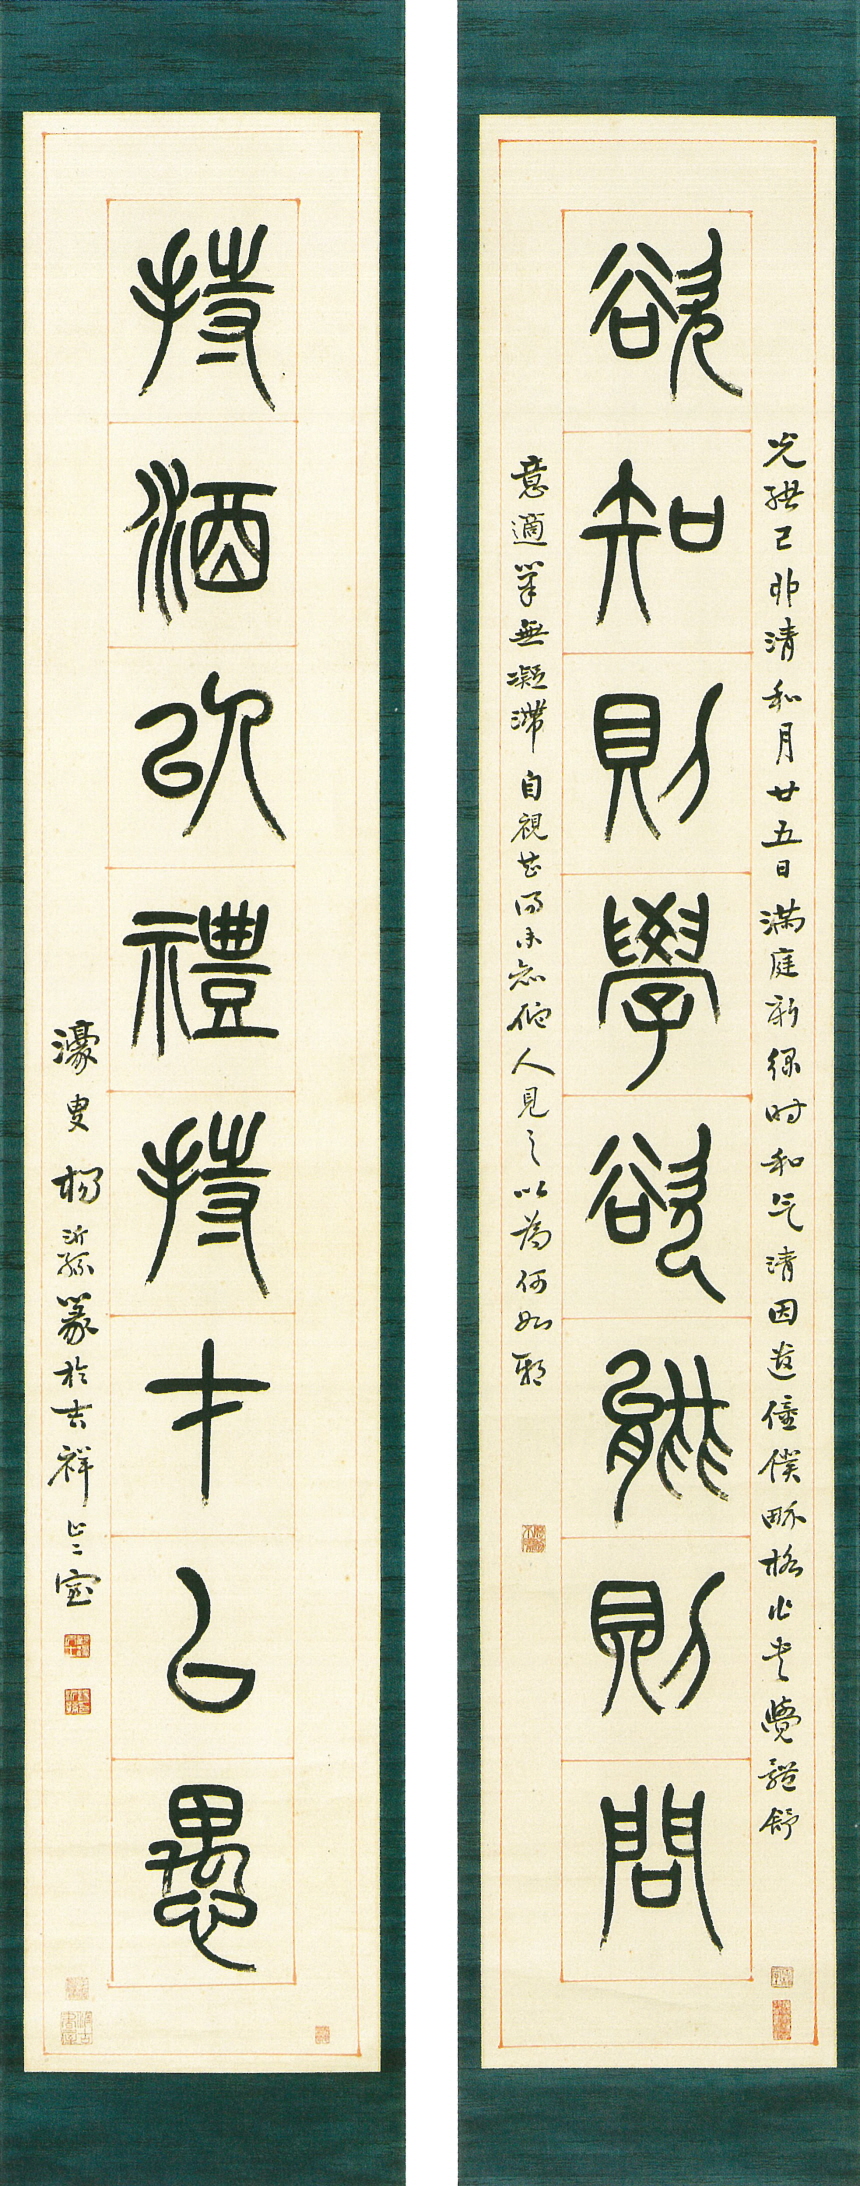 欲知則學欲能則問
光緒己卯清和月廿五日滿庭新綠時和气清因遣僮僕畍格作書覺體舒
意適筆無凝滯自視甚得未知他人見之以為何如耶
持酒以禮持才以愚
濠叟楊沂孫篆於吉祥止止室